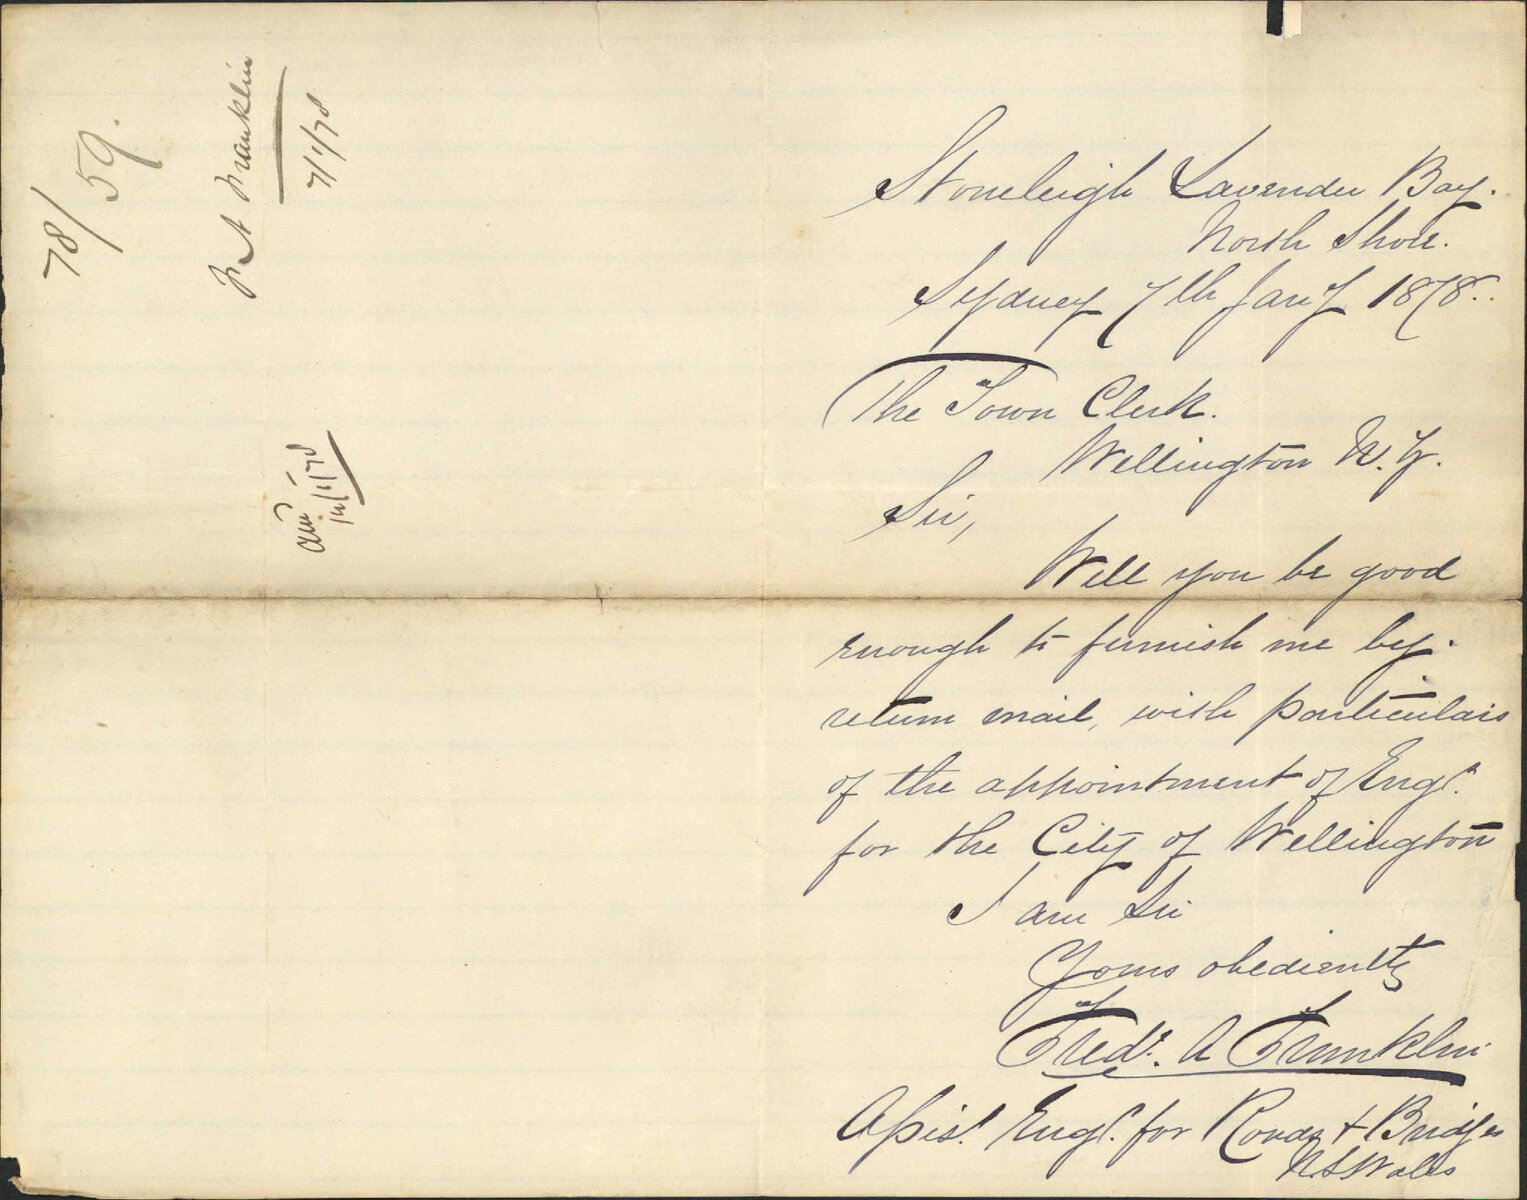 78/59.
F A Franklin
7/1/78
14/1/78
Stoneleigh Lavender Bay.
North Shore.
Sydney 7th Jany 1878.
The Town Clerk.
Wellington N.Z.
Sir,
Will you be good
enough to furnish me by
return mail, with particulars
of the appointment of Engr.
for the City of Wellington
I am Sir
Yours obediently
Fredk. A Franklin
Assist. Engr. for Roads & Bridges
N.S Wales